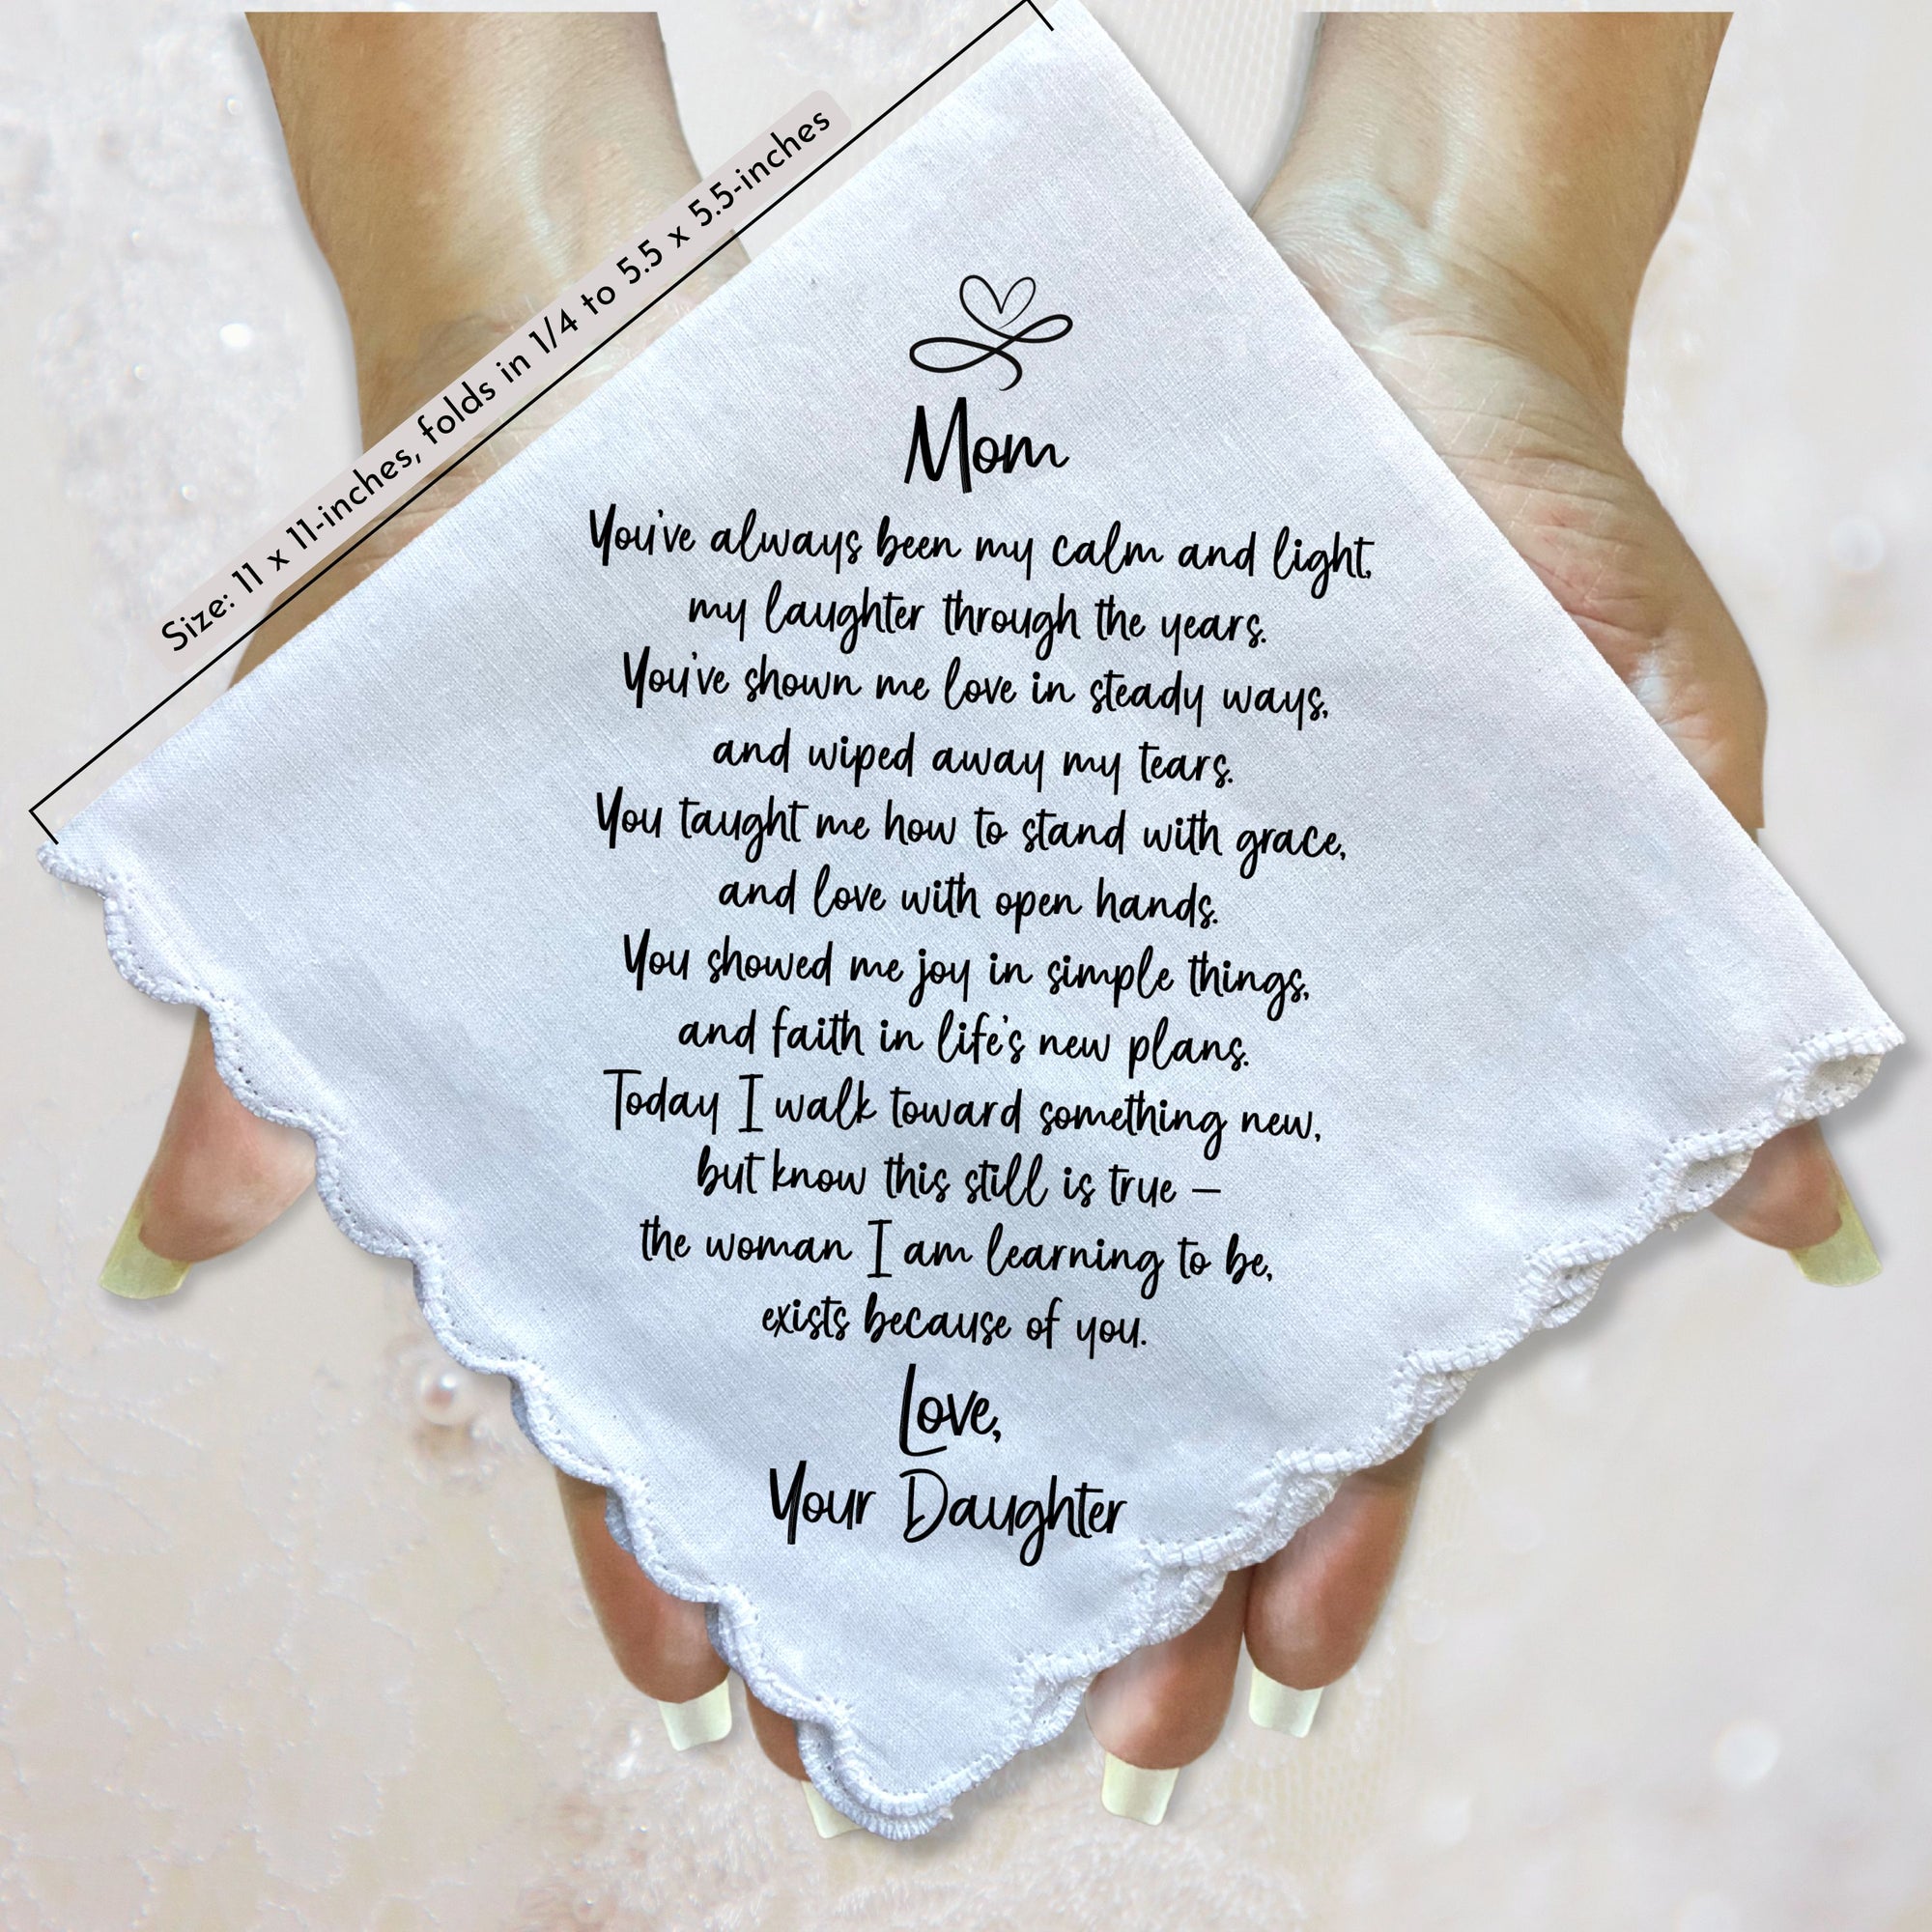 Size: 11 x 11-inches, folds in 1/4 to 5.5 x 5.5-inches
Mom
You've always been my calm and light,
my laughter through the years.
You've shown me love in steady ways,
and wiped away my tears.
You taught me how to stand with grace,
and love with open hands.
You showed me joy in simple things,
and faith in life's new plans.
Today I walk toward something new,
but know this still is true –
the woman I am learning to be,
exists because of you.
Love,
Your Daughter